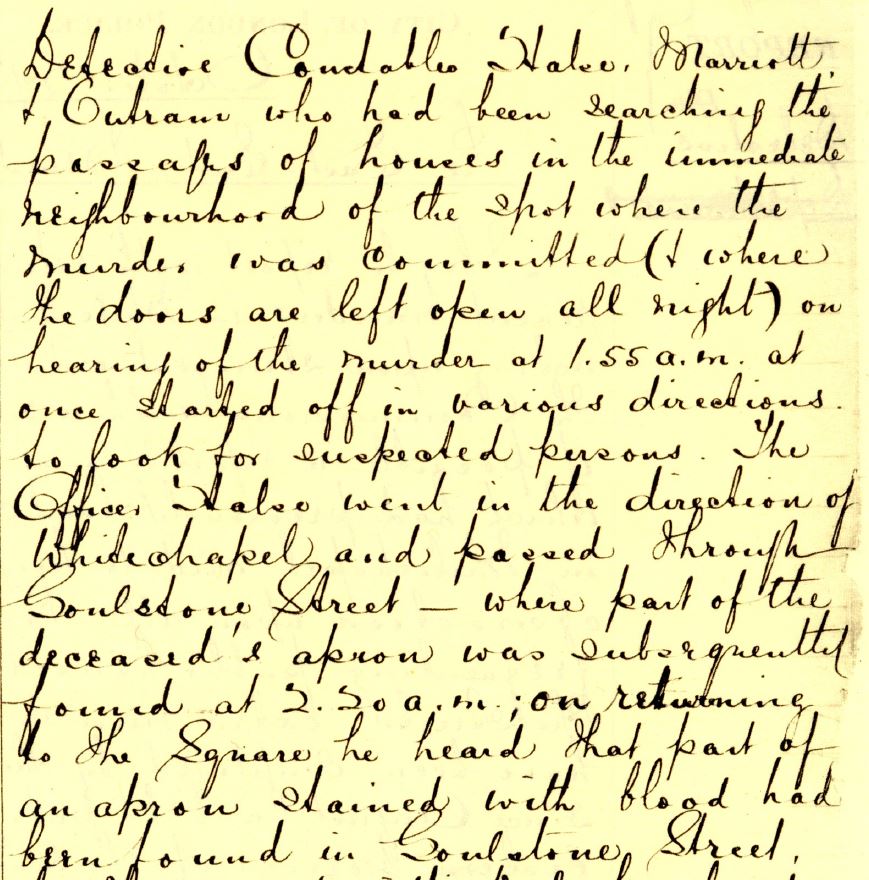 Detective Constables Halse, Marriott,
& Outram who had been searching the
passages of houses in the immediate
neighbourhood of the spot where the
murder was committed (& where
the doors are left open all night) on
hearing of the murder at 1.55 a.m. at
once started off in various directions.
to look for suspected persons. The
Officer Halse went in the direction of
Whitechapel and passed through
Goulstone Street — where part of the
deceased's apron was subsequently
found at 2.20 a.m.; on returning
to the Square he heard that part of
an apron stained with blood had
been found in Goulstone Street,